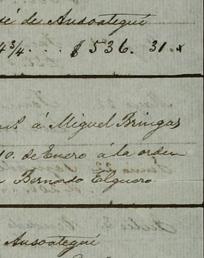 sé de Ausoategui
4¾ . . . $536. 31. x
á Miguel Bringas
10. de Enero á la orden
Bernardo Elguero
Ausoategui